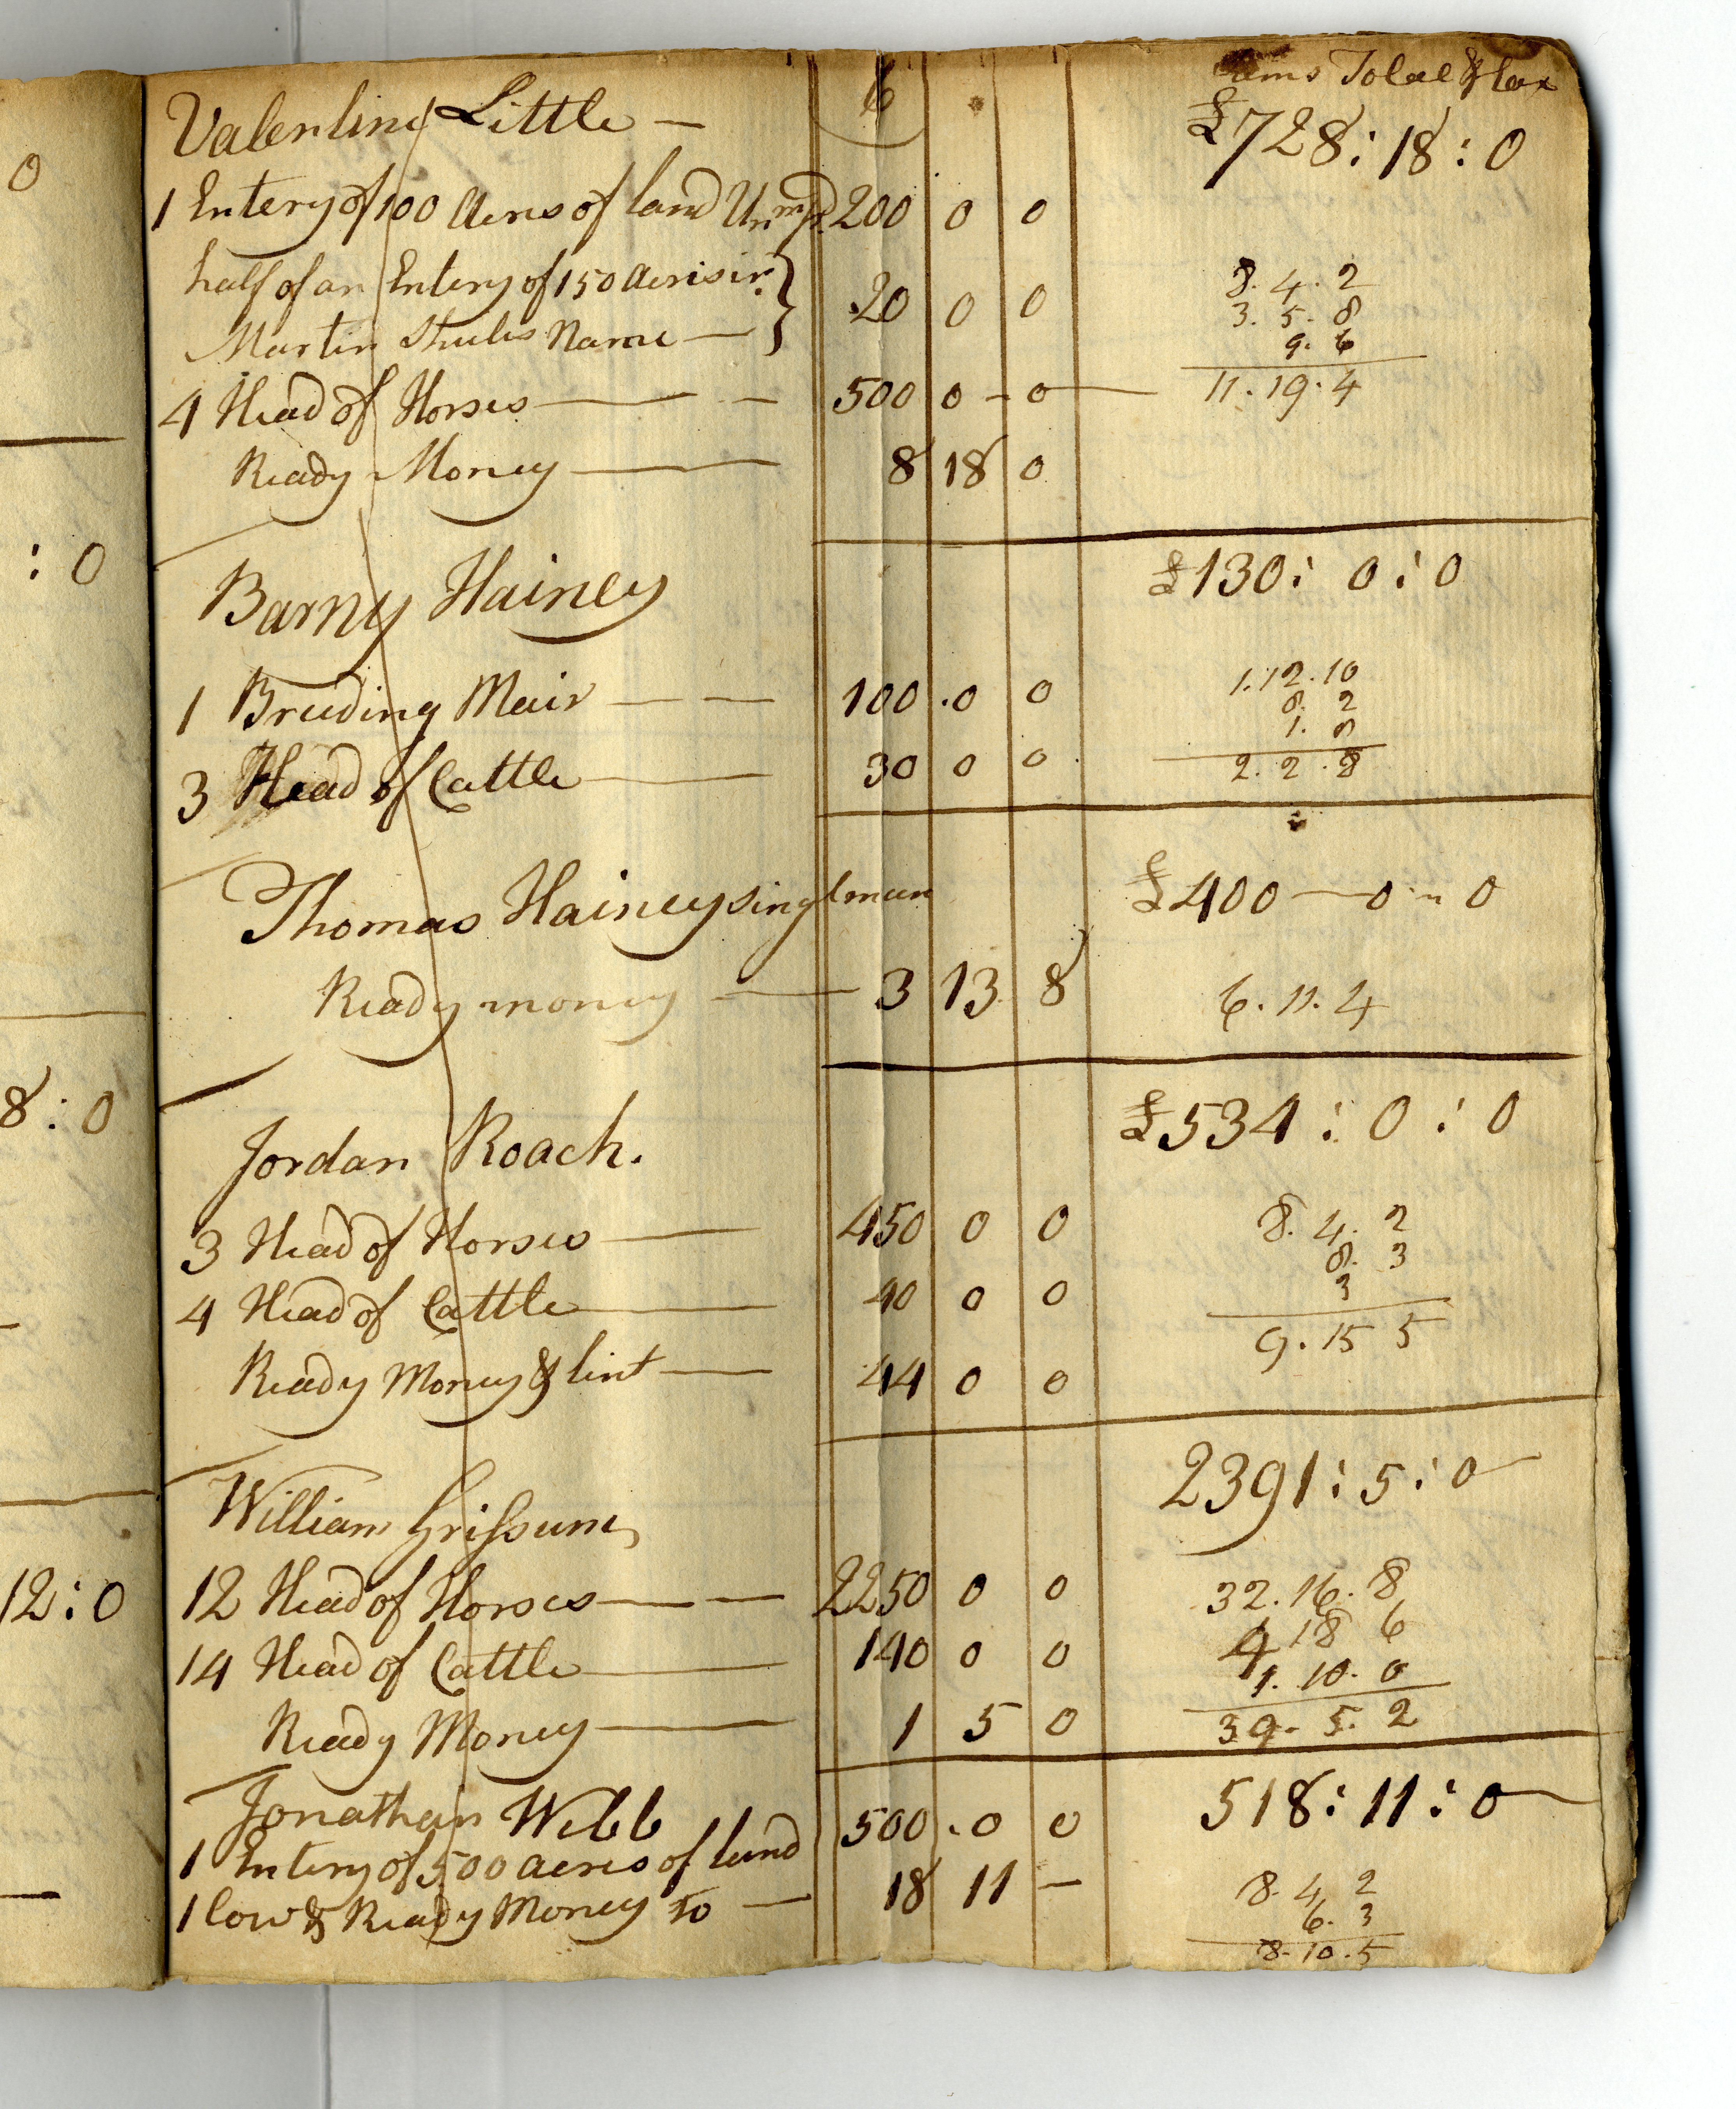 0
: 0
8 : 0
12 : 0
6
Sums Total & tax
Valentine Little —
£728 : 18 : 0
1 Entery of 100 Acres of land Unimpd. 200 0 0
half of an Entery of 150 Acres in }
Martin Shules Name — } 20 0 0
8. 4. 2
3. 5. 8
9. 6
4 Head of Horses — — 500 0 - 0 —
11. 19. 4
Ready Money — 8 18 0
Barny Hainey
£130 : 0 : 0
1 Breeding Mair — — 100 . 0 0
1. 12. 10
8. 2
1. 8
3 Head of Cattle — 30 0 0
2. 2. 8
Thomas Hainey singlman
£400 — 0 " 0
Ready money — 3 13 8
6. 11. 4
Jordan Roach.
£534 : 0 : 0
3 Head of Horses — 450 0 0
8. 4. 2
8. 3
3
4 Head of Cattle — 40 0 0
9. 15 5
Ready Money & lint — 44 0 0
William Grissum
2391 : 5 : 0
12 Head of Horses — — 2250 0 0
32. 16. 8
4 18 6
1. 10. 0
14 Head of Cattle — 140 0 0
39. 5. 2
Ready Money — 1 5 0
Jonathan Webb
518 : 11 : 0
1 Entery of 500 acres of land 500 . 0 0
1 Cow & Ready Money to — 18 11 —
8. 4. 2
6. 3
8. 10. 5